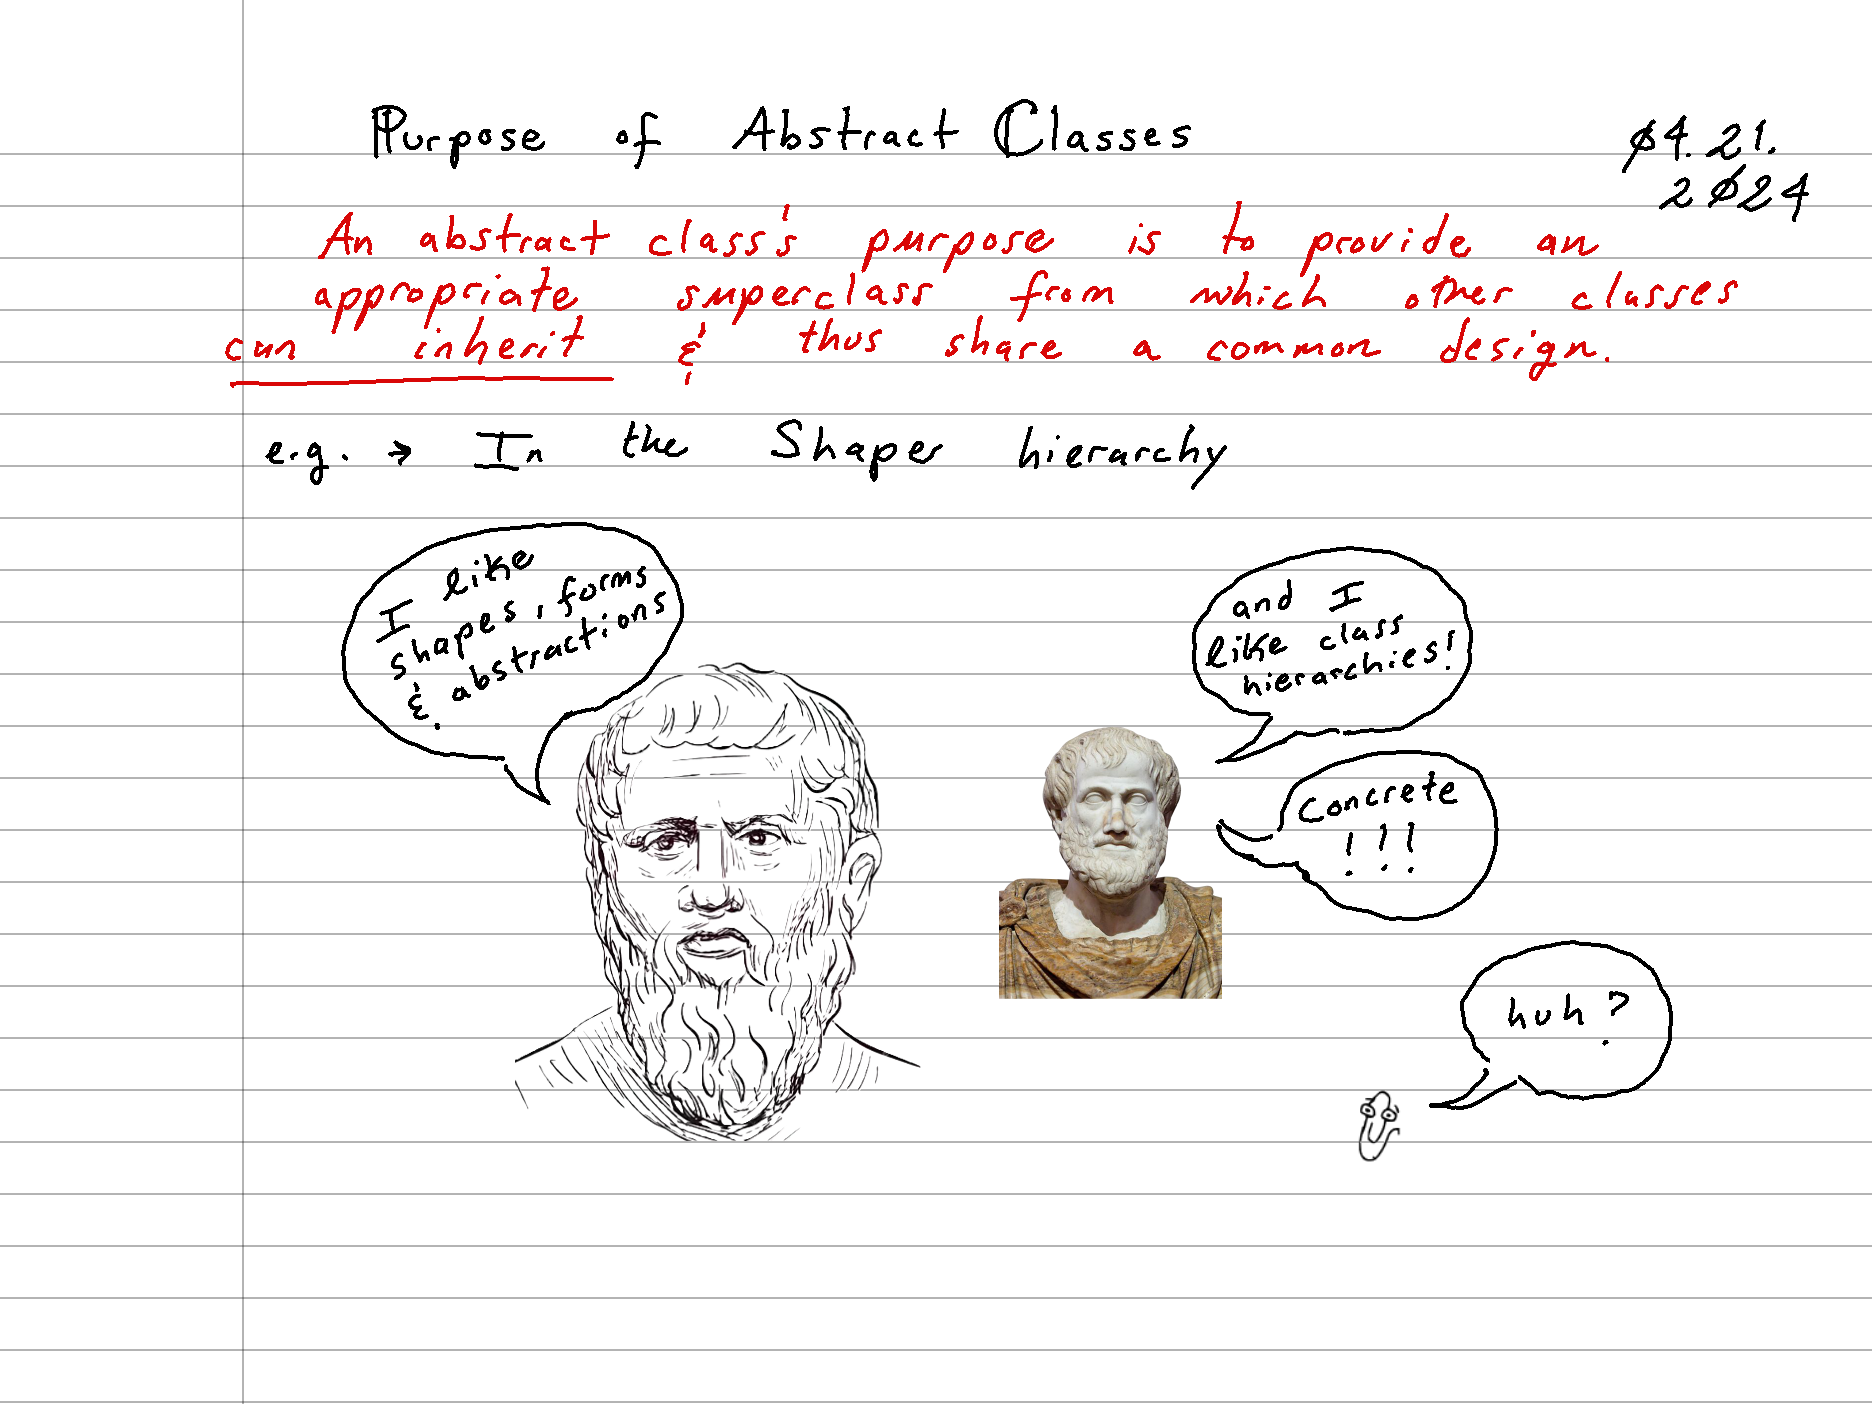 Purpose of Abstract Classes
04.21.
2024
An abstract class's purpose is to provide an
appropriate superclass from which other classes
can inherit & thus share a common design.
e.g. → In the Shaper hierarchy
I like
shapes, forms
& abstractions
and I
like class
hierarchies!
Concrete
!!!
huh?